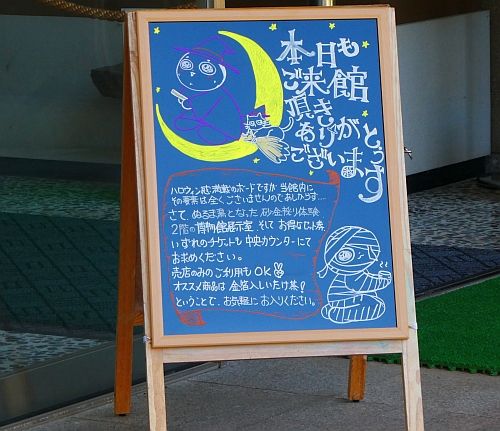 本日も
ご来館
頂き
ありがとう
ございます
ハロウィン感満載のボードですが 当館内に
その要素は全くございませんのであしからず…
さて ぬるま湯となった 砂金採り体験
2階の博物館展示室 そして お得なセット券
いずれのチケットも 中央カウンターにて
お求めください。
売店のみのご利用も OK
オススメ商品は 金箔入しいたけ茶!
ということで、お気軽に お入りください。